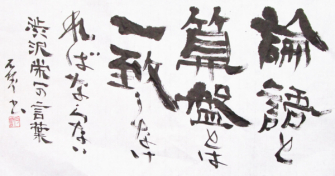 論語と
算盤とは
一致しなけ
ればならない
渋沢栄一の言葉